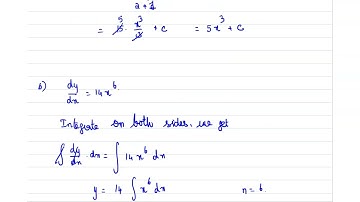 2+1
= 15 5 · x³/3 + c = 5x³ + c
s) dy/dx = 14x⁶.
Integrate on both sides, we get
∫ dy/dx · dx = ∫ 14x⁶ dx
y = 14 ∫ x⁶ dx n = 6.